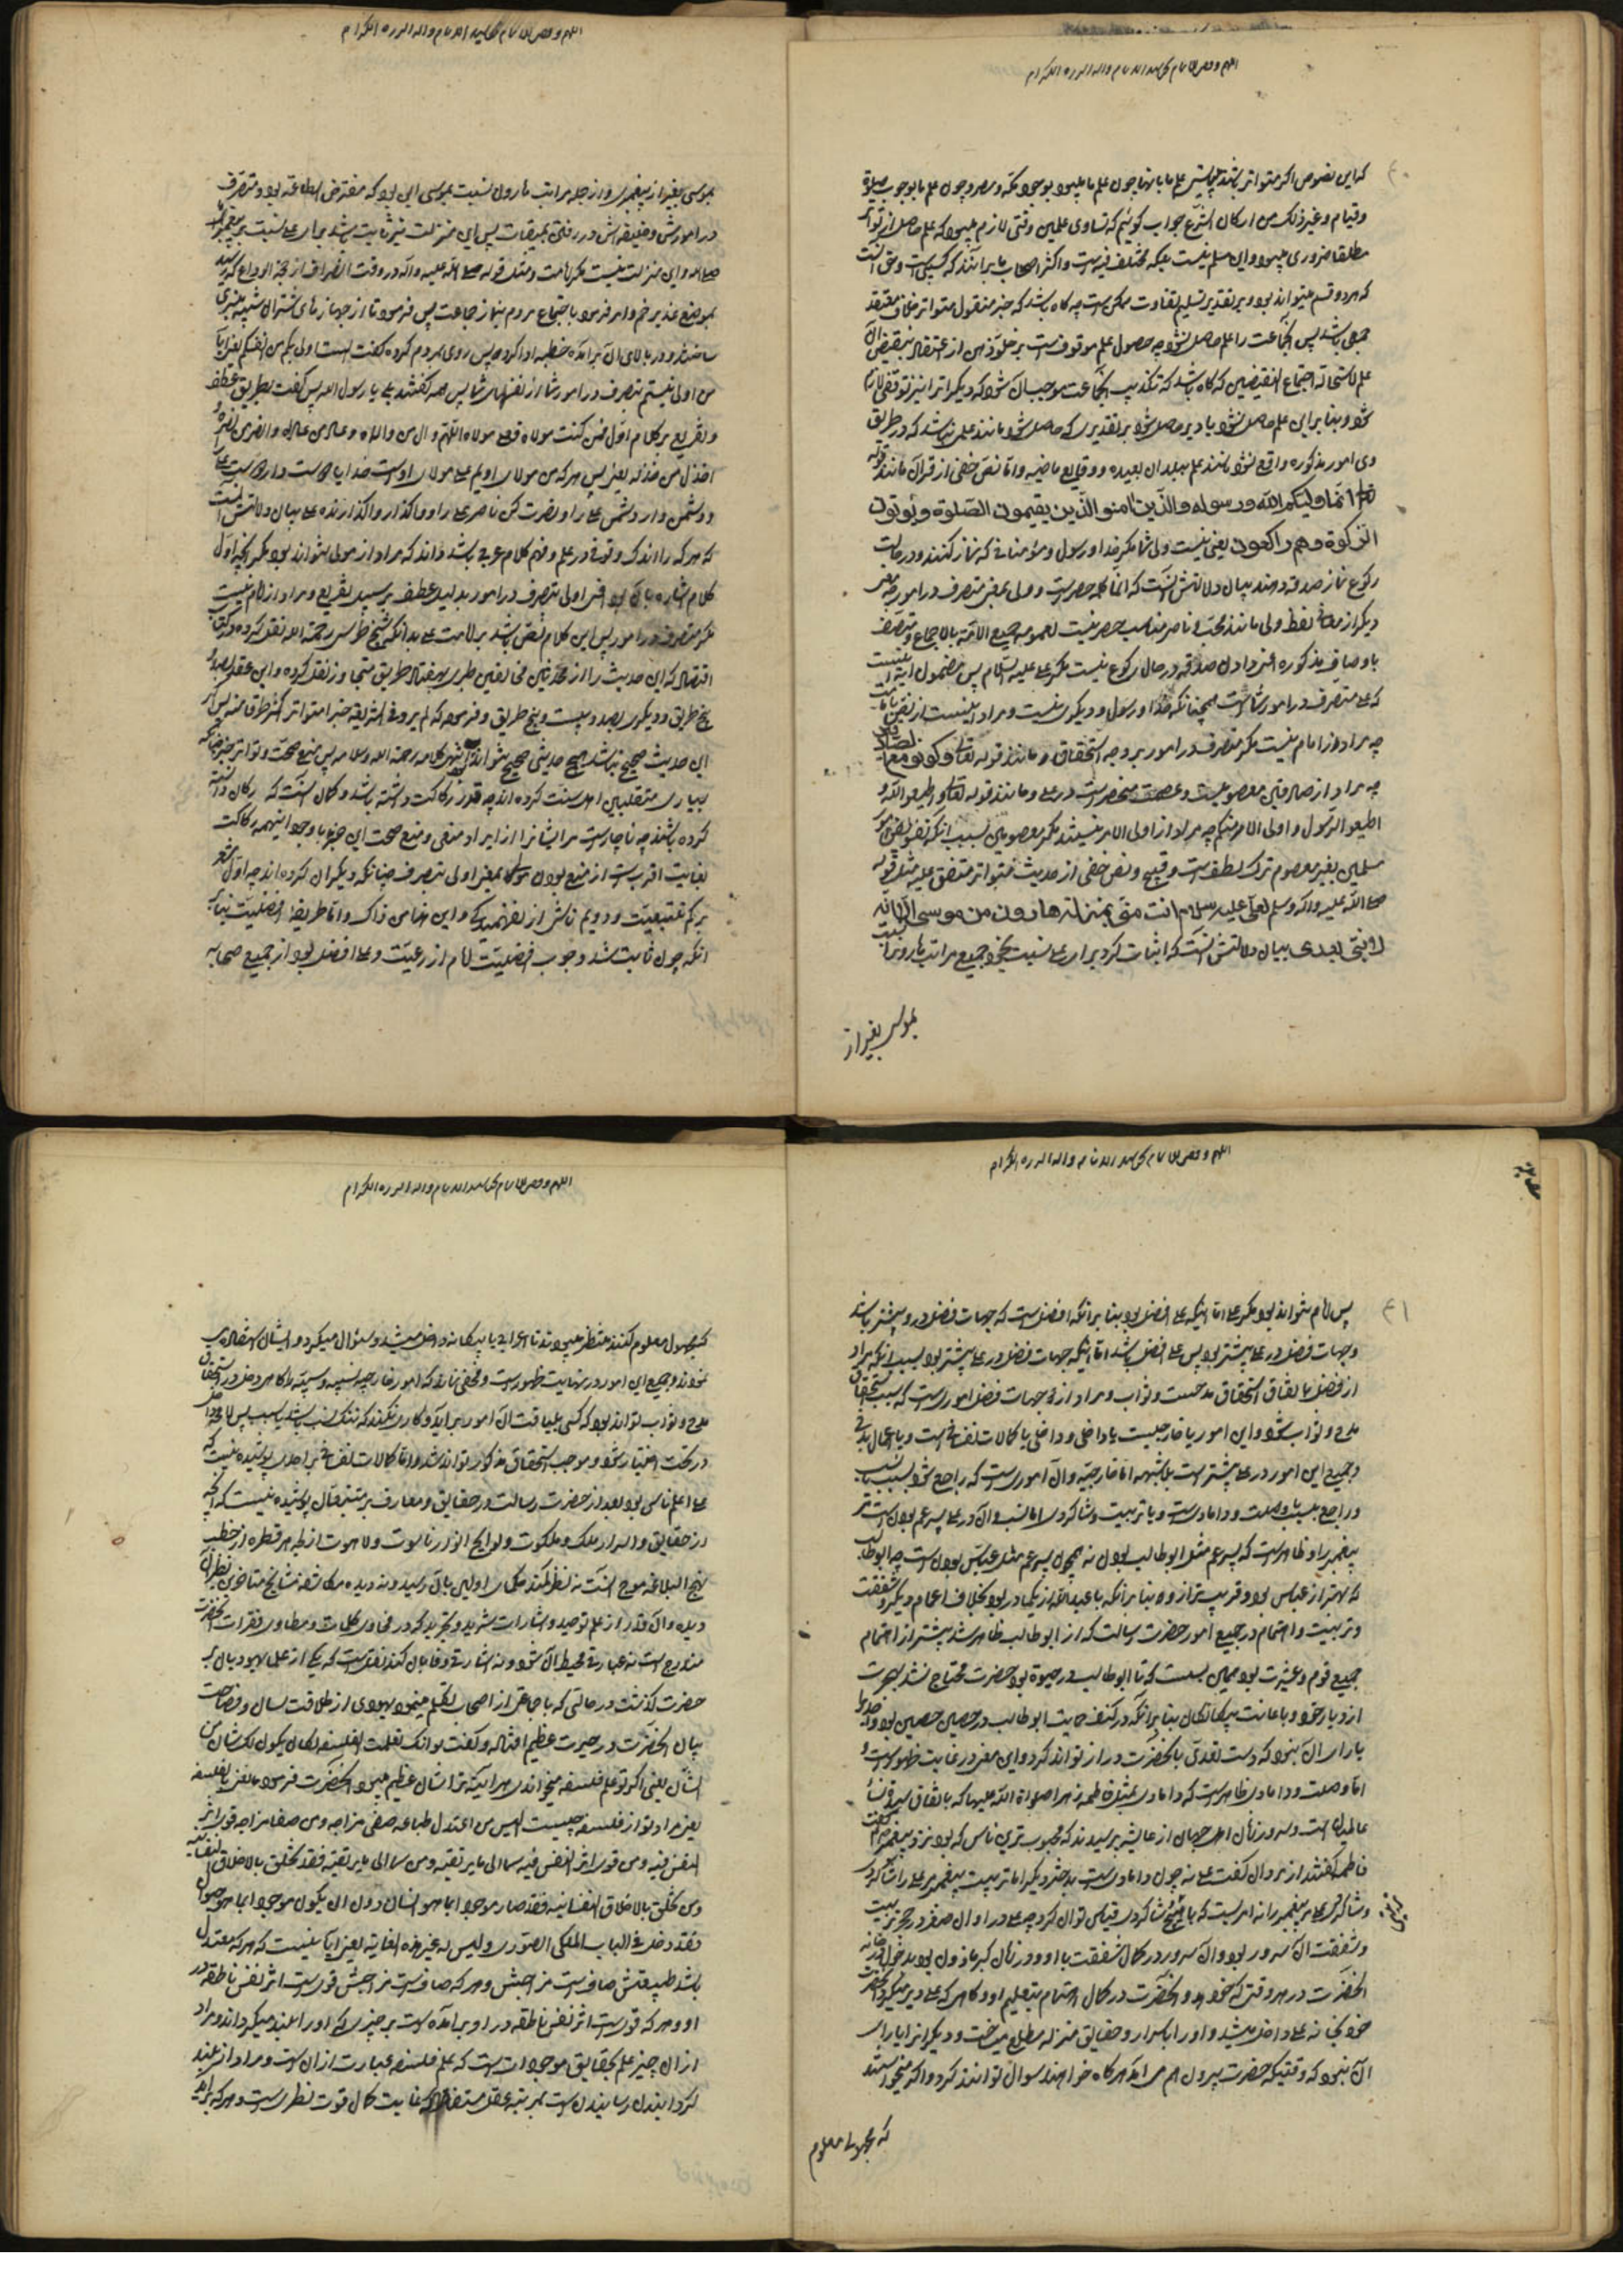 که این نصوص اگر متواتر باشند پس علم ما بآنها چون علم ما بوجود مکه و مصر و چون علم ما بوجوب صلوة
و قیام و غیر ذلک من ارکان الشرع جواب گوئیم که تساوی علمین وقتی لازم که علم حاصل از تواتر
مطلقا ضروری و این مسلم نیست بلکه مختلف فیه است و اکثر اصحاب ما برآنند که کسبی است و حق آنست
که هر دو قسم میتواند بود و بر تقدیر تسلیم تفاوت ممکن است چه گاه باشد که خبر منقول متواتر خلاف معتقد
جمعی باشد پس آنجماعت را علم حاصل نشود چه حصول علم موقوفست بر خلو ذهن از اعتقاد بنقیض آن
علم لاستحالة اجتماع النقیضین که گاه باشد که تکذیب آنجماعت موجب آن شود که دیگران را نیز توقفی
شود و بنابراین علم حاصل نشود یا دیر حاصل شود بر تقدیری که حاصل شود مانند علمی نباشد که در طریق
وی امور مذکوره واقع نشود مانند علم ببلدان بعیده و وقایع ماضیه و اما نص خفی از قرآن مانند قوله
تعالی انما ولیکم الله ورسوله والذین امنو الذین یقیمون الصلوة ویؤتون
الزکوة وهم راکعون یعنی نیست ولی شما مگر خدا و رسول و مؤمنانی که نماز کنند و در حالت
رکوع نماز صدقه دهند بیان دلالتش آنست که انما کلمه حصر است و ولی بمعنی متصرف در امور چه معنی
دیگر از لفظ ولی مانند محب و ناصر مناسب حصر نیست لعمومه جمیع الامة بالاجماع و متصف
باوصاف مذکوره اعنی دادن صدقه در حال رکوع نیست مگر علی علیه السلام پس مضمون آیه این است
که علی متصرف در امور شماست همچنانکه خدا و رسول و دیگری نیست و مراد اینست از نص بامامت
چه مراد از امام نیست مگر متصرف در امور بر وجه استحقاق و مانند قوله تعالی وکونو مع الصادقین
چه مراد از صادقین معصومین است و عصمت منحصر است در علی و مانند قوله تعالی واطیعو الله و
اطیعو الرسول و اولی الامر منکم چه مراد از اولی الامر نیستند مگر معصومین بسبب آنکه تفویض امور
مسلمین بغیر معصوم ترک لطف است و قبیح و نص خفی از حدیث متواتر متفق علیه مثل قوله
صلی الله علیه واله وسلم لعلی علیه سلام انت منی بمنزلة هارون من موسی الا انه
لا نبی بعدی بیان دلالتش آنست که اثبات کرد برای علی نسبت بخود جمیع مراتب هارون را نسبت
بموسی بغیر از
بموسی بغیر از پیغمبری و از جمله مراتب هارون نسبت بموسی این بود که مفترض الطاعة بود و متصرف
در امورش و خلیفه اش در رفتن بمیقات پس این منزلت نیز ثابت باشد برای علی نسبت بپیغمبر
و این منزلت نیست مگر امامت و مثل قوله صلی الله علیه و آله در وقت انصراف از حجة الوداع که رسید
بموضع غدیر خم و امر فرمود باجتماع مردم بنماز جماعت پس فرمود تا از جهازهای شتران شبیه منبری
ساختند و در بالای آن برآمده خطبه ادا کرده پس روی بمردم کرده گفت الست اولی بکم من انفسکم یعنی آیا
من اولی نیستم بتصرف در امور شما از نفسهای شما پس همه گفتند بلی یا رسول الله پس گفت بطریق عطف
و تفریع بر کلام اول فمن کنت مولاه فعلی مولاه اللهم وال من والاه وعاد من عاداه وانصر من نصره و
اخذل من خذله یعنی پس هر که من مولای اویم علی مولای اوست خدایا دوست دار دوست علی
و دشمن دار دشمن علی را و نصرت کن ناصر علی را و واگذار واگذارنده علی بیان دلالتش آنست
که هر که را اندک وقوفی در علم و فهم کلام عربی باشد داند که مراد از مولی نتواند بود مگر آنچه اول
کلام اشاره بآن بود اعنی اولی بتصرف در امور بدلیل عطف بر سبیل تفریع و مراد از امام نیست
مگر متصرف در امور پس این کلام نص باشد بر امامت علی بدانکه شیخ طوسی رحمه الله نقل کرده
اقتصاد که این حدیث را از محدثین مخالفین طبری بهفتاد طریق متجاوز نقل کرده و ابن عقده بصد و
پنج طریق و دیگری بصد و بیست و پنج طریق و فرموده که لم یرو فی الشریعة خبر متواتر اکثر طرقا منه پس اگر
این حدیث صحیح نباشد هیچ حدیثی صحیح نتواند بود کلامه رحمه الله و سلامه پس منع صحت و تواتر خبر چنانکه
بسیاری متقلبین اهل سنت کرده اند چه قدر رکاکت داشته باشد و گمان آنست که رکان دانسته
کرده باشند چه ناچار است مر ایشان را از ایراد منعی و منع صحت این خبر با وجود اینهمه رکاکت
بغایت اقرب است از منع بودن مولی بمعنی اولی بتصرف چنانکه دیگران کرده اند چه اول مشعر
بر کم تتبعیت و دویم ناشی از نفهمیدگی و این من ذاک و اما طریقه افضلیت بنا بر
آنکه چون ثابت شد وجوب افضلیت امام از رعیت و علی افضل بود از جمیع صحابه
پس امام نتواند بود مگر علی اما اینکه علی افضل بود بنا بر آنکه افضل است که جهات فضل در و بیشتر باشد
و جهات فضل در علی بیشتر بود پس علی افضل باشد اما اینکه جهات فضل در علی بیشتر بود بسبب آنکه مراد
از فضل باتفاق استحقاق مدحست و ثواب و مراد از جهات فضل امور است که سبب استحقاق
مدح و ثواب شود و این امور یا خارجیست یا داخلی و داخلی یا کمالات نفسانی است و یا اعمال بدنی
و جمیع این امور در علی بیشتر است بلاشبهه اما خارجیه و آن امور است که راجع شود بسبب یا نسب
و راجع بسبب یا وصلت و دامادیست و یا تربیت و شاگردی اما نسب و آن در علی پسر عم بودن است مر
پیغمبر را و ظاهر است که پسر عم مثل ابوطالب بودن نه همچون پسر عم مثل عباس بودن است چه ابوطالب
که بهتر از عباس بود و قریب تر از وی بنا بر آنکه با عبدالله از یک مادر بود بخلاف اعمام دیگر و شفقت
و تربیت و اهتمام در جمیع امور حضرت رسالت که از ابوطالب ظاهر شد بیشتر از اهتمام
جمیع قوم و عشیرت بود همین بس است که تا ابوطالب در حیوة بود حضرت محتاج نشد بهجرت
از دیار خود و باعانت بیگانگان بنا بر آنکه در کنف حمایت ابوطالب در حصین حصین بود و اعدا
یارای آن نبود که دست تعدی بآنحضرت دراز تواند کرد و این معنی در غایت ظهور است و
اما وصلت و دامادی ظاهر است که دامادی بمثل فاطمه زهرا صلواة الله علیها که باتفاق سیده نساء
عالمیان است و سرور زنان اهل جهان از عایشه پرسیدند که محبوب ترین ناس که بود نزد پیغمبر گفت
فاطمه گفتند از مردان گفت علی نه چون دامادیست بدختر دیگر اما تربیت پیغمبر علی را و شاگردی
و شاگردی علی مر پیغمبر را نه امریست که با هیچ شاگردی قیاس توان کرد چه علی در اوان صغر در حجر تربیت
و شفقت آن سرور بود و آن سرور در کمال شفقت با او و در زمان کبر ماذون بود بدخول در خانه
آنحضرت در هر وقتی که خواهد و آنحضرت در کمال اهتمام بتعلیم او و گاهی که علی دیر میکرد آنحضرت
خود بخانه علی داخل میشد و او را باسرار و حقایق منزله مطلع میساخت و دیگران را یارای
آن نبود که وقتیکه حضرت بیرون هم می آید هرگاه خواهند سوال توانند کرد و اگر میخواستند
که مجهولی معلوم
کنند منتظر میبودند تا اعرابی یا بیگانه داخل میشد و سئوال میکرد و ایشان استفاده
نمودند و جمیع این امور در نهایت ظهور است و مخفی نماند که امور خارجیه نسبیه و سببیه را گاهی دخل در استحقاق
مدح و ثواب تواند بود که کسی بلیاقت آن امور برآید و کاری نکند که ننگ نسب باشد یا سبب پس لا محاله
در تحت اختیار شود و موجب استحقاق مذکور تواند شد و اما کمالات نفسانی بر احدی پوشیده نیست که
علی اعلم ناس بود بعد از حضرت رسالت و در حقایق و معارف بر متتبعان پوشیده نیست که آنچه
از حقایق و اسرار ملک و ملکوت و لوایح انوار ناسوت و لاهوت از لجه هر قطره از خطب
نهج البلاغه موج است نه نظر بلند حکمای اولین بآن رسیده و نه دیده مکاشفه مشایخ متاخرین نظیر آن
دیده و آن قدر از علم توحید و اشارات تنزیه و تجرید که در فحاوی کلمات و مطاوی فقرات آنحضرت
مندرج است نه عبارتی محیط آن شود و نه اشارتی وفا بآن کند نقلست که یکی از علمای یهود بآن
حضرت گذشت در حالتی که با جماعتی از اصحاب تکلم مینمود یهودی از طلاقت لسان و فصاحت
بیان آنحضرت در حیرت عظیم افتاده و گفت لو انک تعلمت الفلسفة لکان یکون لک شان من
الشأن یعنی اگر تو علم فلسفه میخواندی هر آینه ترا شان عظیم میبود آنحضرت فرمود ما تعنی بالفلسفة
یعنی مراد تو از فلسفه چیست الیس من اعتدل طباعه صفی مزاجه و من صفا مزاجه قوی اثر
النفس فیه و من قوی اثر النفس فیه سما الی ما یرتقیه و من سما الی ما یرتقیه فقد تخلق بالاخلاق النفسانیه
و من تخلق بالاخلاق النفسانیه فقد صار موجودا بما هو انسان دون ان یکون موجودا بما هو حیوان
فقد دخل فی الباب الملکی الصوری و لیس له عن هذه الغایة یعنی آیا نیست که هر که معتدل
باشد طبیعتش صاف است مزاجش و هر که صاف است مزاجش قویست اثر نفس ناطقه در
او و هر که قویست اثر نفس ناطقه در او برآمده است بر چیزی که او را بلند میگرداند و مراد
از آن چیز علم بحقایق موجودات است که علم فلسفه عبارت از آن است و مراد از بلند
گردانیدن رسانیدن است بمرتبه عقل مستفاد که غایت کمال قوت نظریست و هر که برآید